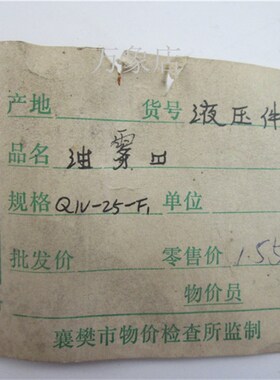 万象店
产地 货号 液压件
品名 油雾口
规格 QIU-25-F1 单位
批发价 零售价 1.55
物价员
襄樊市物价检查所监制